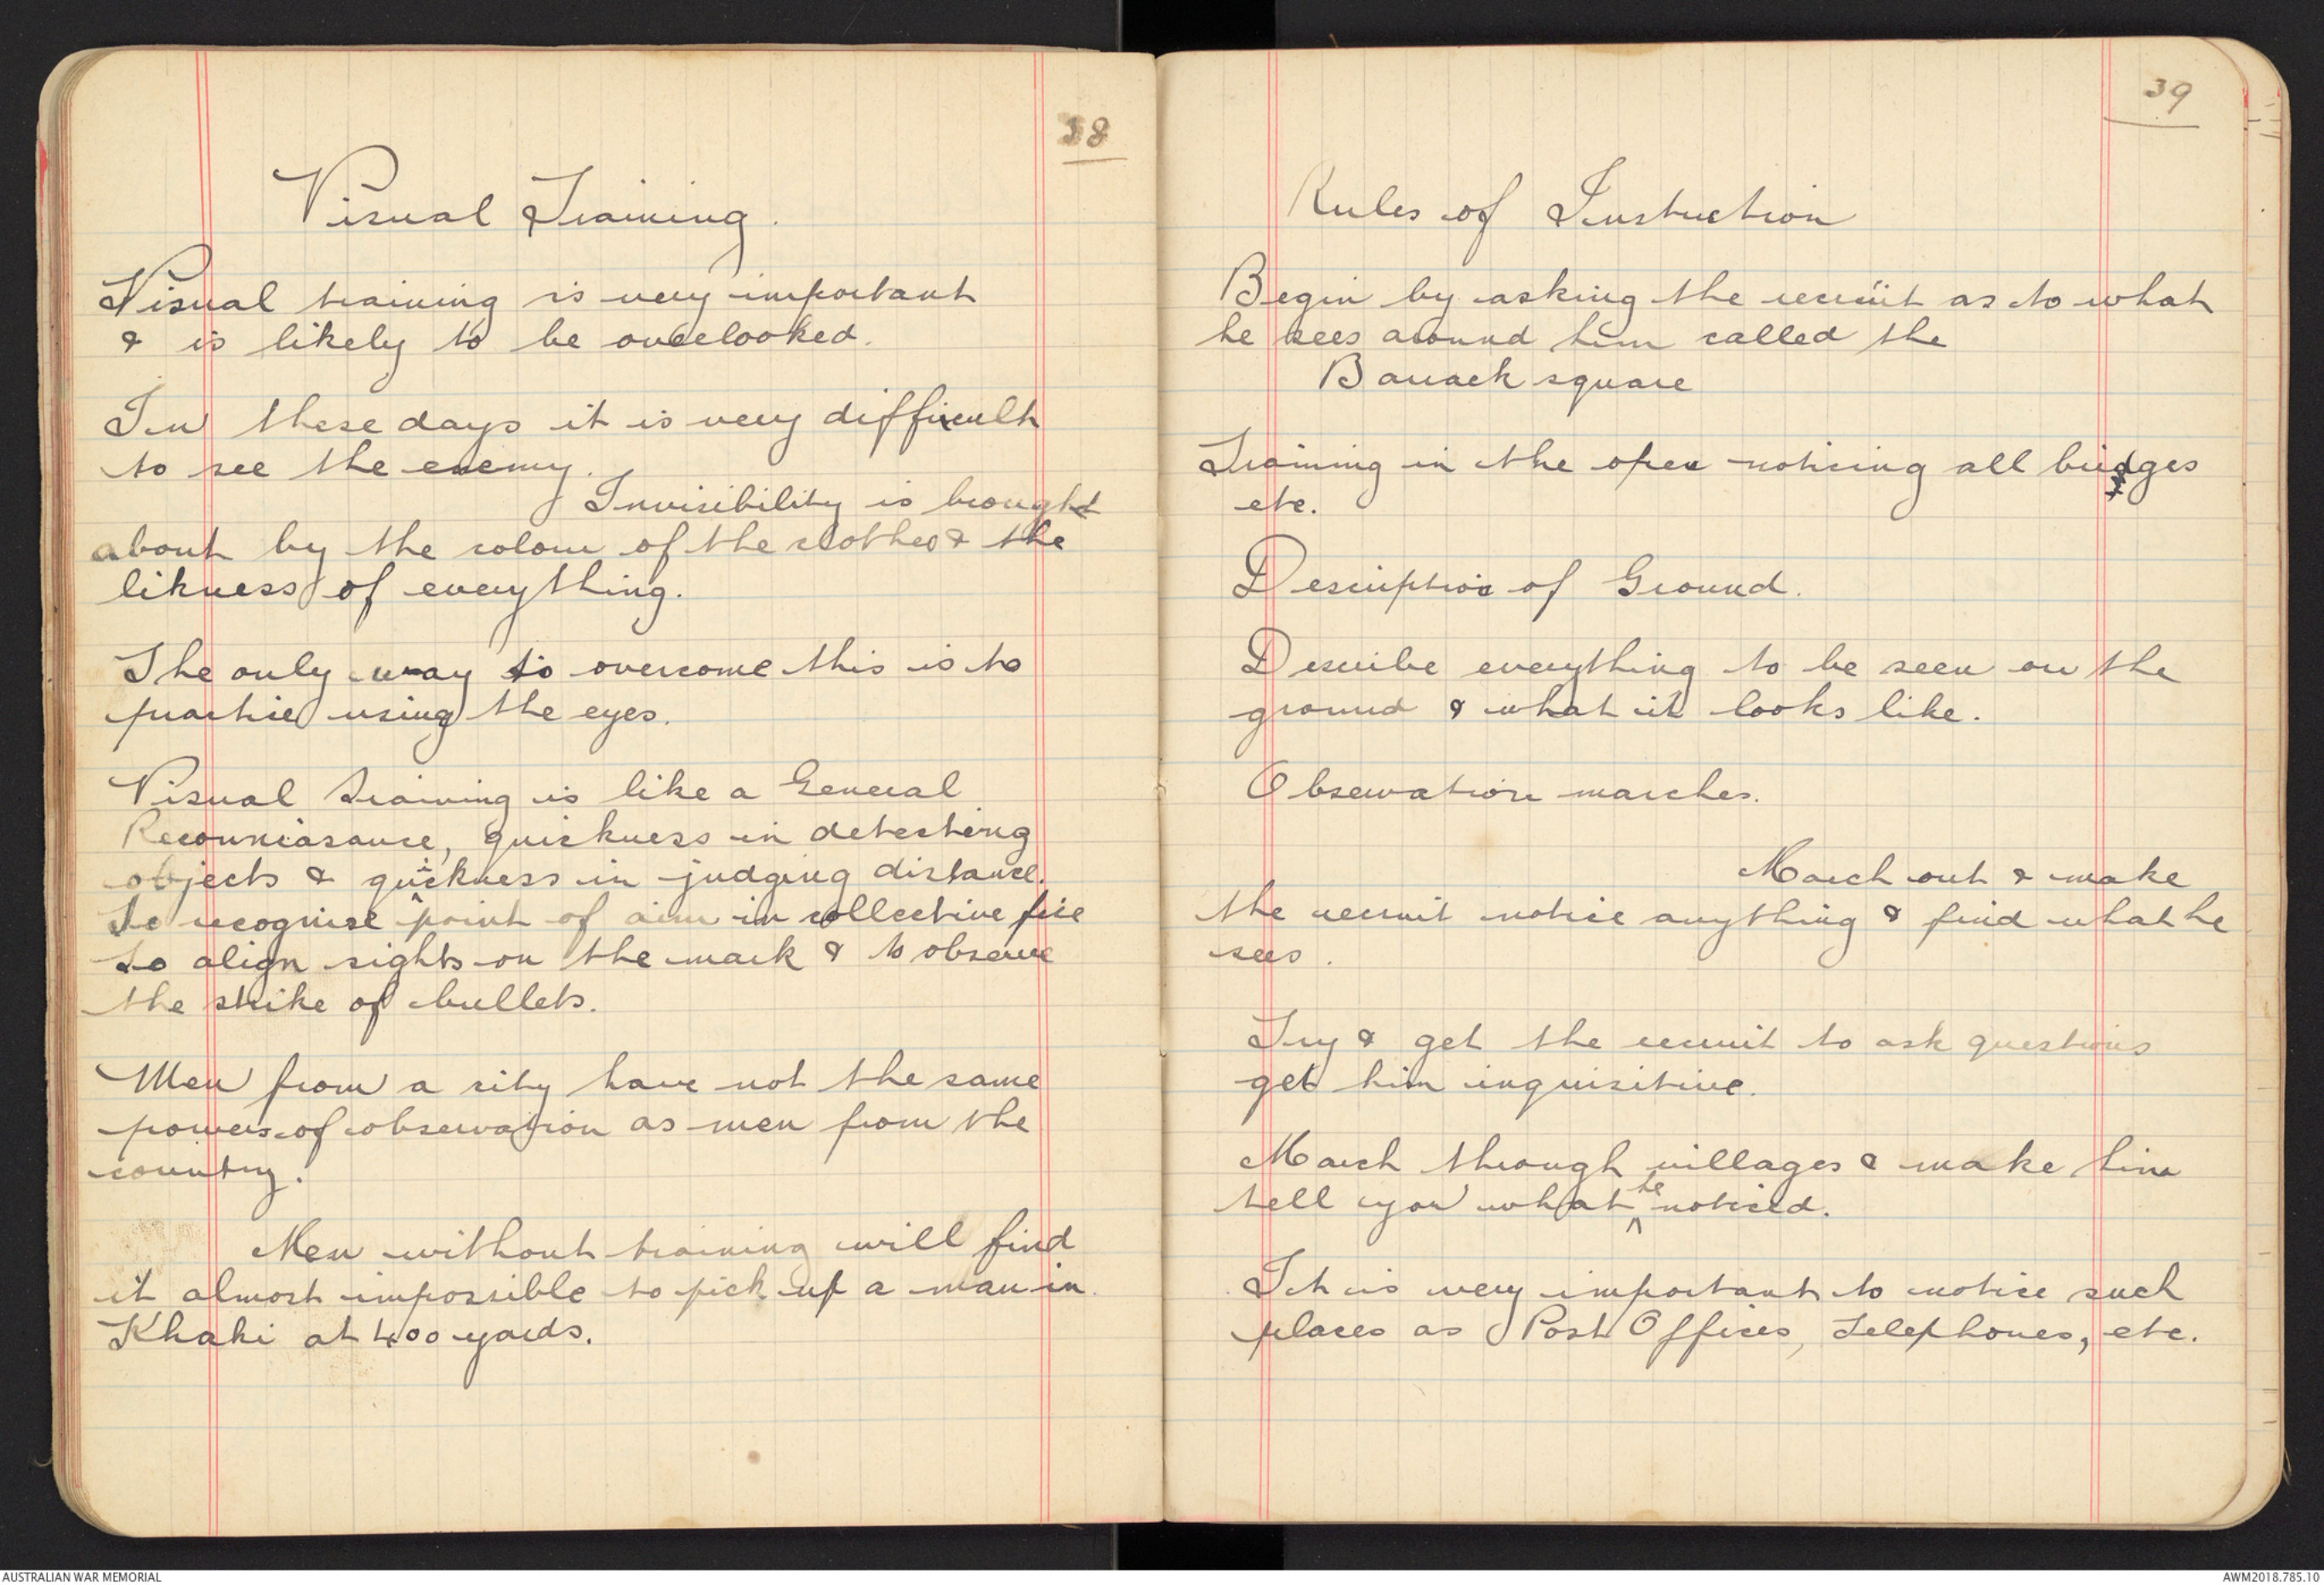 38
Visual Training.
Visual training is very important
& is likely to be overlooked.
In these days it is very difficult
to see the enemy.
Invisibility is brought
about by the colour of the clothes & the
likness of everything.
The only way to overcome this is to
practice using the eyes.
Visual training is like a General
Reconniasance, quickness in detecting
objects & quickness in judging distance.
To recognise point of aim in collective fire
to align sights on the mark & to observe
the strike of bullets.
Men from a city have not the same
powers of observation as men from the
country.
Men without training will find
it almost impossible to pick up a man in
Khaki at 400 yards.
39
Rules of Instruction
Begin by asking the recruit as to what
he sees around him called the
Barrack square
Training in the open noticing all bridges
etc.
Description of Ground.
Describe everything to be seen on the
ground & what it looks like.
Observation marches.
March out & make
the recruit notice anything & find what he
sees.
Try & get the recruit to ask questions
get him inquisitive.
March through villages & make him
tell you what he noticed.
It is very important to notice such
places as Post Offices, Telephones, etc.
AUSTRALIAN WAR MEMORIAL
AWM2018.785.10